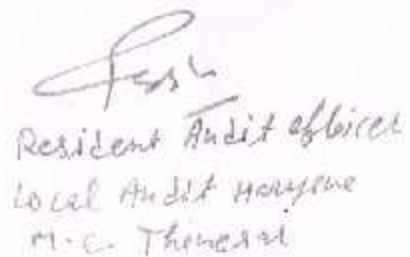 Resident Audit officer
Local Audit Haryana
M.C. Thanesar